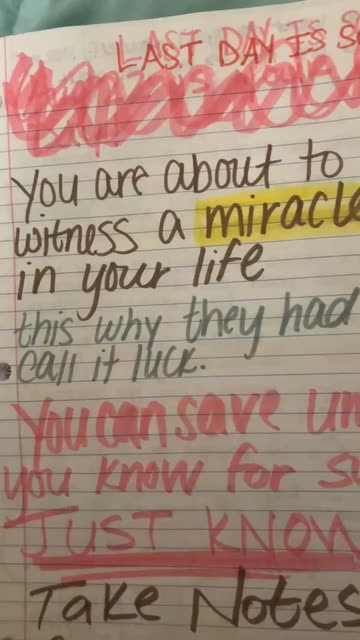 LAST DAY IS
You are about to
witness a miracle
in your life
this why they had
call it luck.
You can save
you know for
JUST KNOW
Take Notes